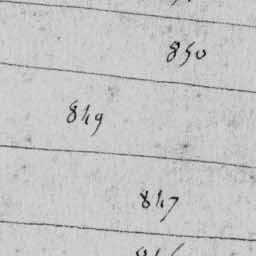 850
849
847